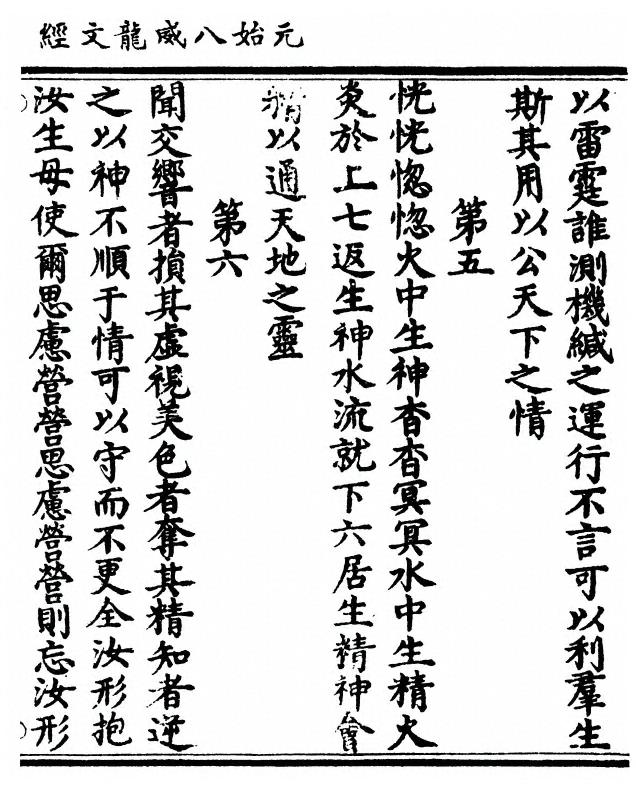 元始八威龍文經
以雷霆誰測機緘之運行不言可以利羣生
斯其用以公天下之情
第五
恍恍惚惚火中生神杳杳冥冥水中生精火
炎於上七返生神水流就下六居生精神會
精以通天地之靈
第六
聞交響者損其虛視美色者奪其精知者逆
之以神不順于情可以守而不更全汝形抱
汝生毋使爾思慮營營思慮營營則忘汝形